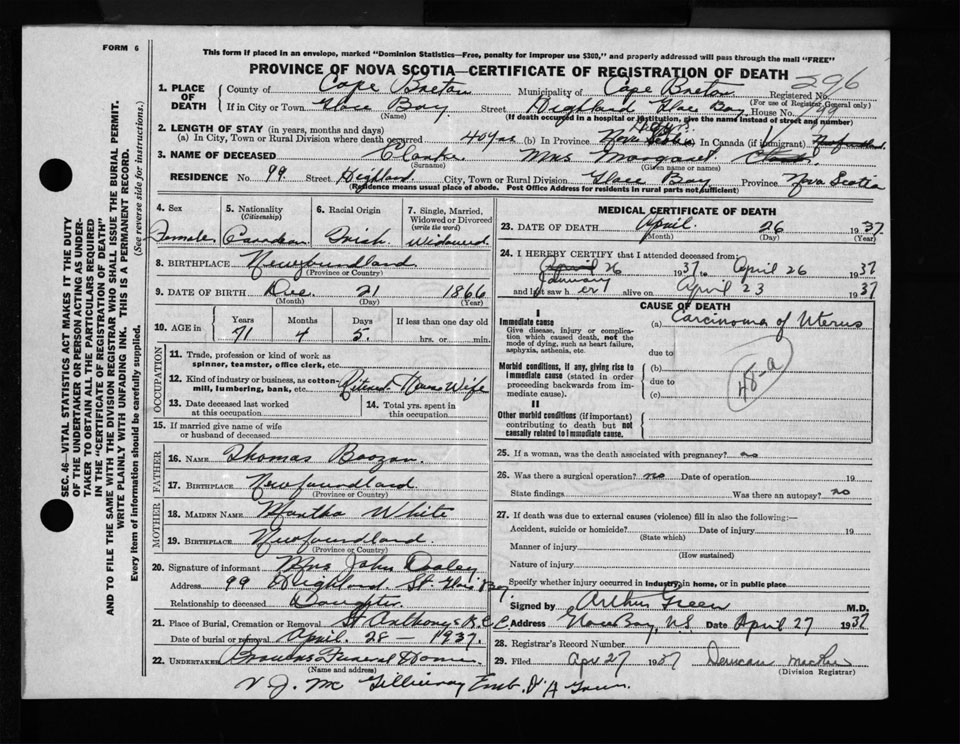 FORM 6
This form if placed in an envelope, marked "Dominion Statistics—Free, penalty for improper use $300," and properly addressed will pass through the mail "FREE"
PROVINCE OF NOVA SCOTIA—CERTIFICATE OF REGISTRATION OF DEATH
296
1. PLACE OF DEATH
County of Cape Breton Municipality of Cape Breton Registered No.
(For use of Registrar General only)
If in City or Town Glace Bay Street Highland Glace Bay House No. 99
(Name) (If death occurred in a hospital or institution, give the name instead of street and number)
2. LENGTH OF STAY (in years, months and days)
(a) In City, Town or Rural Division where death occurred 40 yrs (b) In Province 40 yrs. Nova Scotia (c) In Canada (if immigrant) Newfoundland
3. NAME OF DECEASED Clarke Mrs. Margaret
(Surname) (Given name or names)
RESIDENCE No. 99. Street Highland City, Town or Rural Division Glace Bay Province Nova Scotia
(Residence means usual place of abode. Post Office Address for residents in rural parts not sufficient)
4. Sex
Female
5. Nationality
(Citizenship)
Canadian
6. Racial Origin
Irish
7. Single, Married, Widowed or Divorced
(write the word)
Widowed
8. BIRTHPLACE Newfoundland
(Province or Country)
9. DATE OF BIRTH Dec. 21 1866
(Month) (Day) (Year)
10. AGE in Years Months Days If less than one day old
71 4 5. hrs. or min.
OCCUPATION
11. Trade, profession or kind of work as
spinner, teamster, office clerk, etc.
12. Kind of industry or business, as cotton-
mill, lumbering, bank, etc. Retired House Wife
13. Date deceased last worked
at this occupation
14. Total yrs. spent in
this occupation
15. If married give name of wife
or husband of deceased
FATHER
16. NAME Thomas Boozan.
17. BIRTHPLACE Newfoundland
(Province or Country)
MOTHER
18. MAIDEN NAME Martha White
19. BIRTHPLACE Newfoundland
(Province or Country)
20. Signature of informant Mrs John Ooley
Address 99 Highland St Glace Bay
Relationship to deceased Daughter.
21. Place of Burial, Cremation or Removal St Anthony's R.C.C.
Date of burial or removal April. 28 — 1937.
22. UNDERTAKER Browns Funeral Home
(Name and address)
V J. Mc Gillivray Emb.
MEDICAL CERTIFICATE OF DEATH
23. DATE OF DEATH April. 26 1937
(Month) (Day) (Year)
24. I HEREBY CERTIFY that I attended deceased from:
April 26 1937 to April 26 1937
January
and last saw her alive on April 23 1937
CAUSE OF DEATH
I
Immediate cause
Give disease, injury or complication which caused death, not the mode of dying, such as heart failure, asphyxia, asthenia, etc.
(a) Carcinoma of Uterus
due to
Morbid conditions, if any, giving rise to immediate cause (stated in order proceeding backwards from immediate cause).
(b)
due to
(c)
48-a
II
Other morbid conditions (if important) contributing to death but not causally related to immediate cause.
25. If a woman, was the death associated with pregnancy? no
26. Was there a surgical operation? no Date of operation 19
State findings Was there an autopsy? no
27. If death was due to external causes (violence) fill in also the following:—
Accident, suicide or homicide? Date of injury 19
(State which)
Manner of injury
(How sustained)
Nature of injury
Specify whether injury occurred in industry, in home, or in public place
Signed by Arthur Green M.D.
Address Glace Bay, N.S. Date April 27 1937
28. Registrar's Record Number
29. Filed Apr 27 1937 Duncan MacRae
(Division Registrar)
SEC. 46—VITAL STATISTICS ACT MAKES IT THE DUTY
OF THE UNDERTAKER OR PERSON ACTING AS UNDER-
TAKER TO OBTAIN ALL THE PARTICULARS REQUIRED
IN THE "CERTIFICATE OF REGISTRATION OF DEATH"
AND TO FILE THE SAME WITH THE DIVISION REGISTRAR WHO SHALL ISSUE THE BURIAL PERMIT.
WRITE PLAINLY WITH UNFADING INK. THIS IS A PERMANENT RECORD.
Every item of information should be carefully supplied. (See reverse side for instructions.)